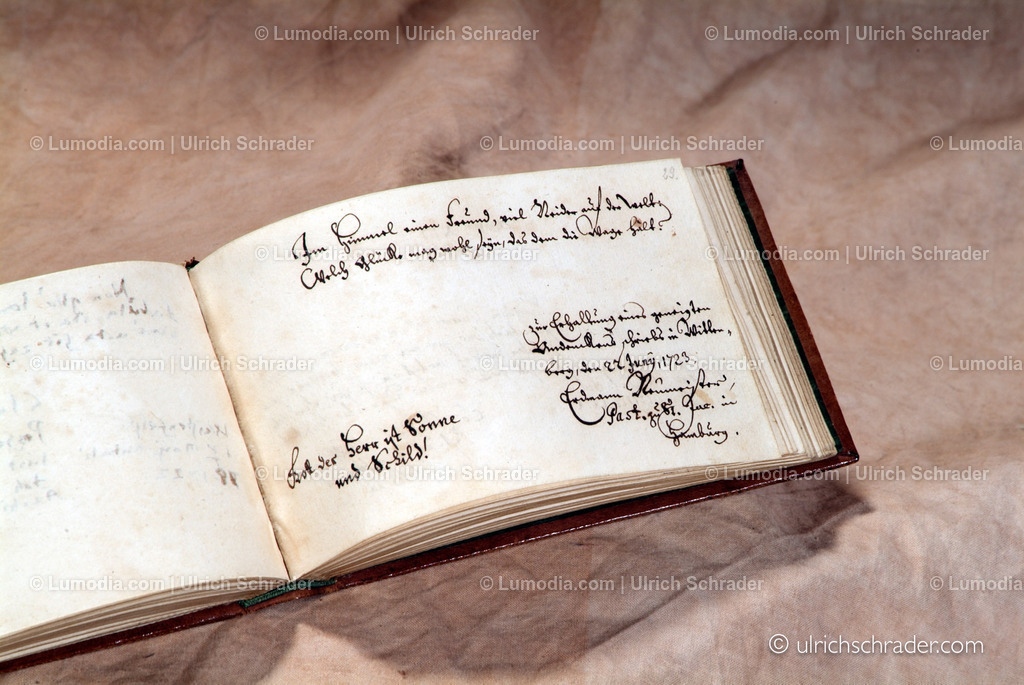 © Lumodia.com | Ulrich Schrader © Lumodia.com | Ulrich Schrader
© Lumodia.com | Ulrich Schrader © Lumodia.com | Ulrich Schrader © Lumodia.com
29.
Im Himmel einen Freund, viel Neider auf der Welt,
Welch Glücke mag wohl seyn, das dem die Wage hält.
© Lumodia.com | Ulrich Schrader © Lumodia.com | Ulrich Schrader
zur Erhaltung eines geneigten
Andenckens schriebs in Witten,
berg, den 22 Juny, 1723.
Erdmann Neumeister,
Past. zu St. Jac. in
Hamburg.
© Lumodia.com | Ulrich Schrader © Lumodia.com | Ulrich Schrader © Lumodia.com
Gott der Herr ist Sonne
und Schild!
© Lumodia.com | Ulrich Schrader © Lumodia.com | Ulrich Schrader
© Lumodia.com | Ulrich Schrader © Lumodia.com | Ulrich Schrader © Lumodia.com
© ulrichschrader.com